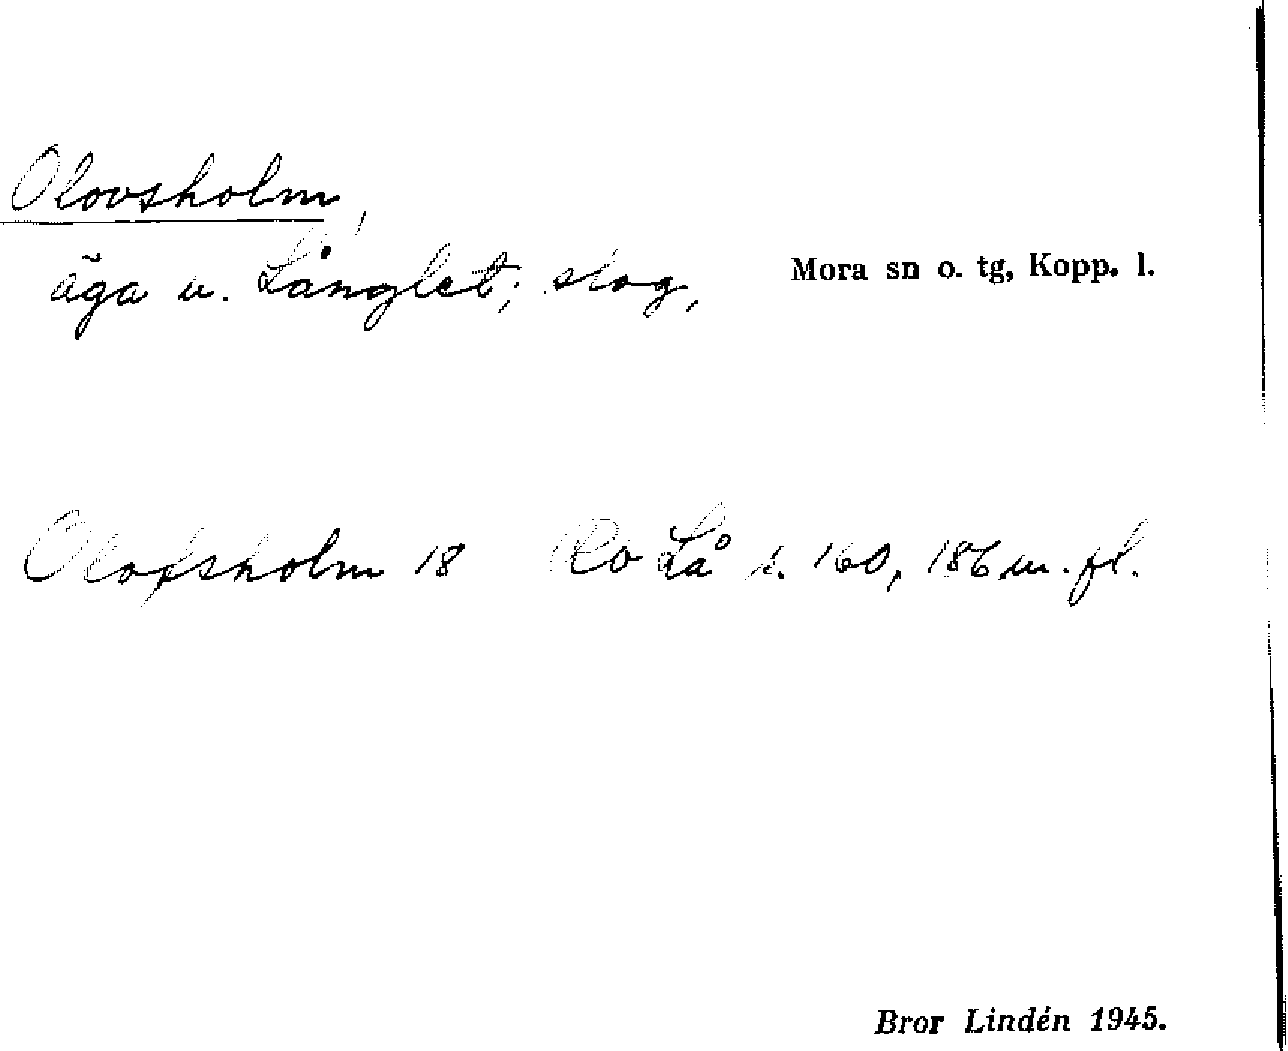 Olovsholm,
äga u. Långlet; skog,
Mora sn o. tg, Kopp. l.
Olofsholm 18 Ro Lå s. 160, 186 m. fl.
Bror Lindén 1945.